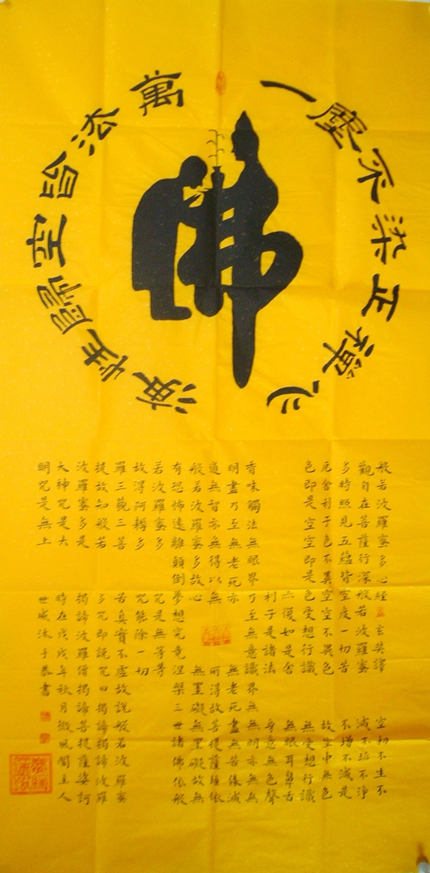 萬法皆空歸性海
一塵不染正禪心
佛
般若波羅蜜多心經 玄奘譯
觀自在菩薩行深般若波羅蜜
多時照見五蘊皆空度一切苦
厄舍利子色不異空空不異色
色即是空空即是色受想行識
亦復如是舍
利子是諸法
空相不生不
滅不垢不淨
不增不減是
故空中無色
無受想行識
無眼耳鼻舌
身意無色聲
香味觸法無眼界乃至無意識界無無明亦無無
明盡乃至無老死亦無老死盡無苦集滅
道無智亦無得以無所得故菩提薩埵依
般若波羅蜜多故心無罣礙無罣礙故無
有恐怖遠離顛倒夢想究竟涅槃三世諸佛依般
若波羅蜜多
故得阿耨多
羅三藐三菩
提故知般若
波羅蜜多是
大神咒是大
明咒是無上
咒是無等等
咒能除一切
苦真實不虛故說般若波羅蜜
多咒即說咒曰揭諦揭諦波羅
揭諦波羅僧揭諦菩提薩婆訶
時在戊戌年秋月微風閣主人
世成沐手恭書